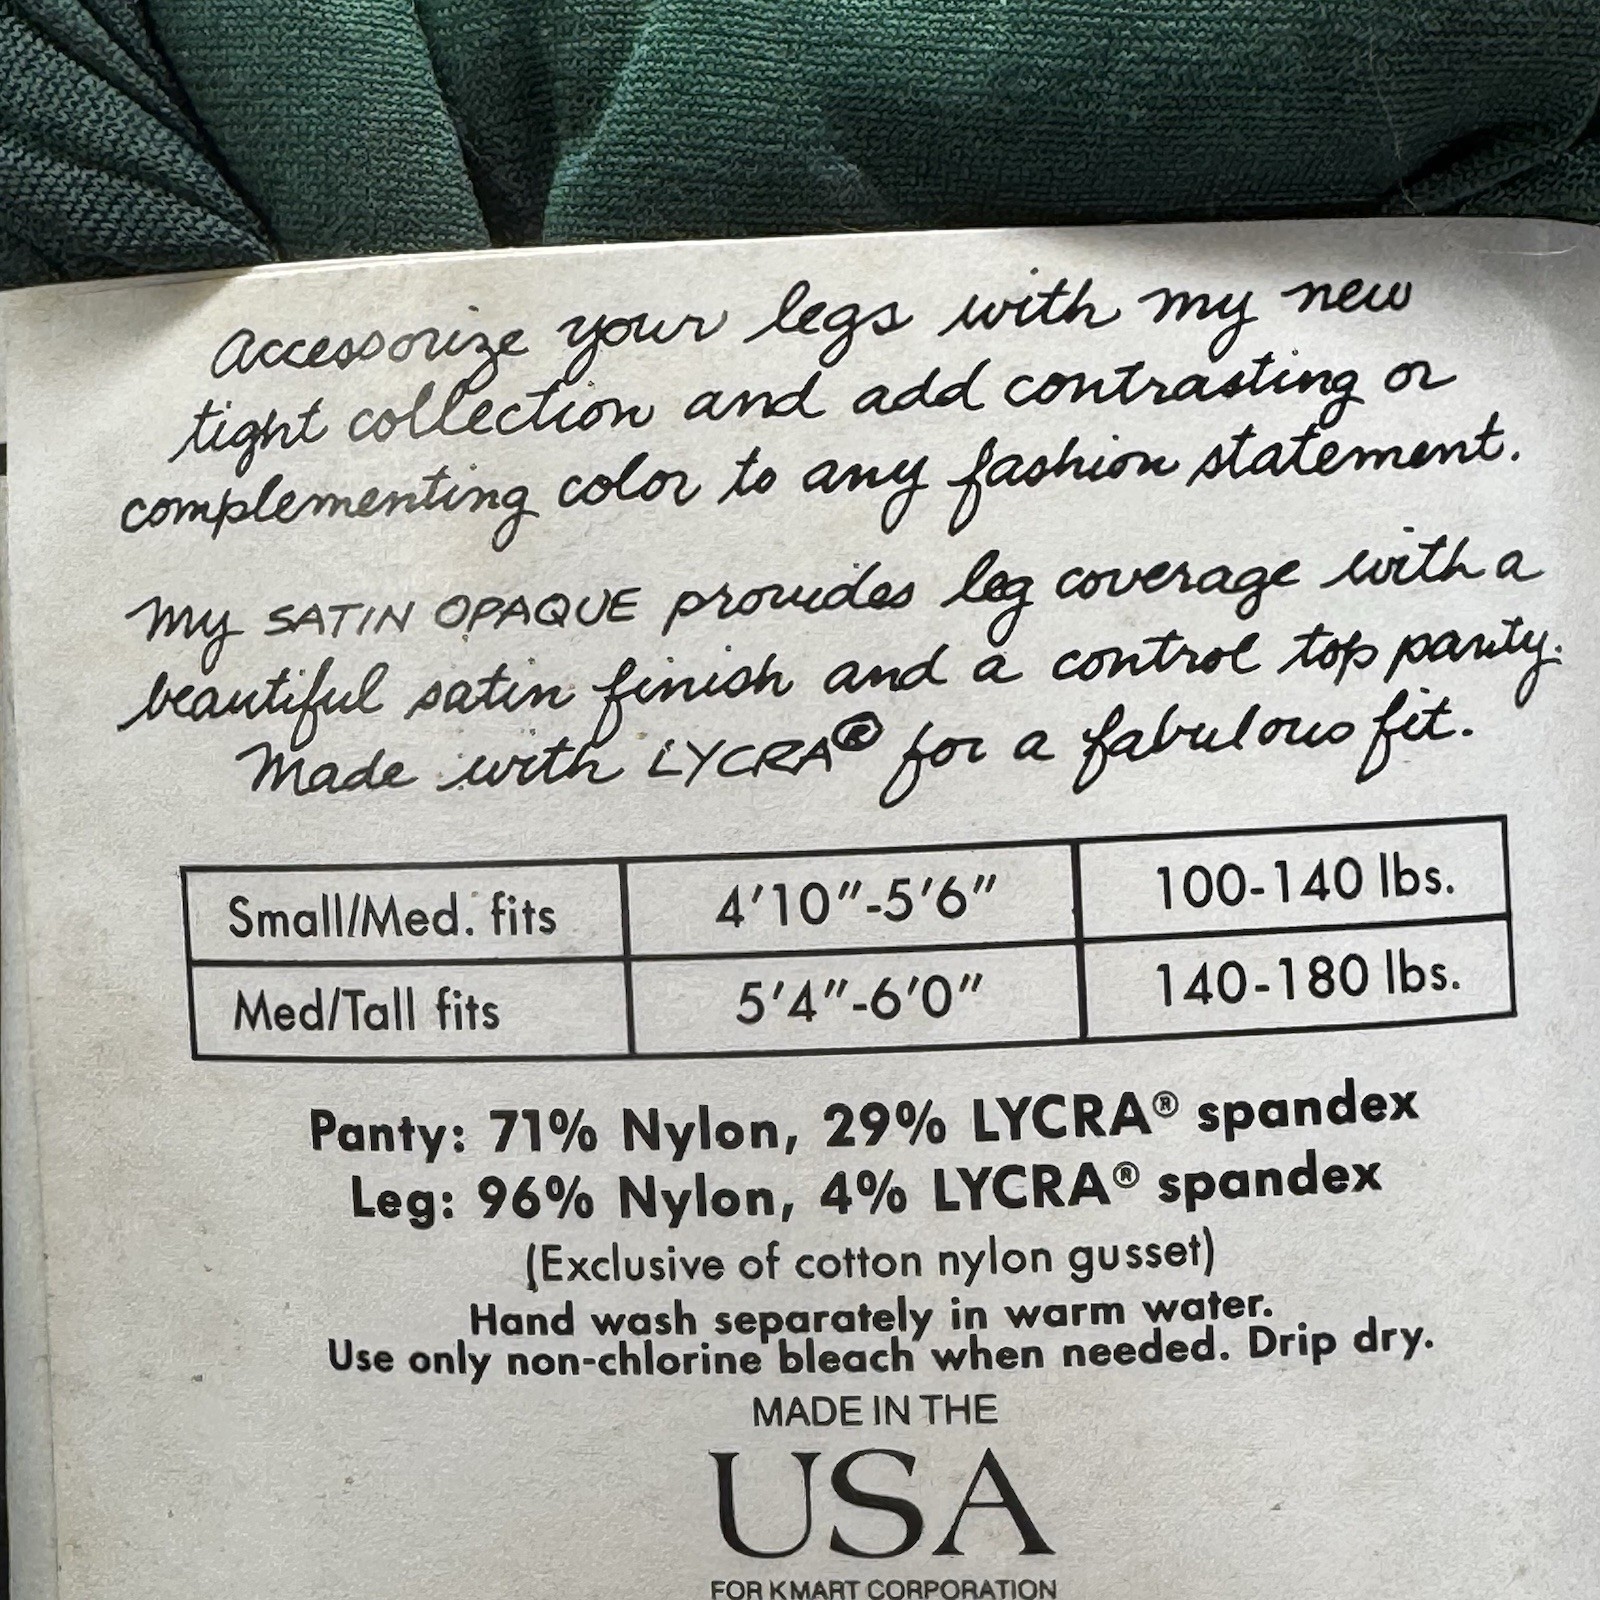 Accessorize your legs with my new
tight collection and add contrasting or
complementing color to any fashion statement.
My SATIN OPAQUE provides leg coverage with a
beautiful satin finish and a control top panty.
Made with LYCRA® for a fabulous fit.
Small/Med. fits 4'10"-5'6" 100-140 lbs.
Med/Tall fits 5'4"-6'0" 140-180 lbs.
Panty: 71% Nylon, 29% LYCRA® spandex
Leg: 96% Nylon, 4% LYCRA® spandex
(Exclusive of cotton nylon gusset)
Hand wash separately in warm water.
Use only non-chlorine bleach when needed. Drip dry.
MADE IN THE
USA
FOR KMART CORPORATION